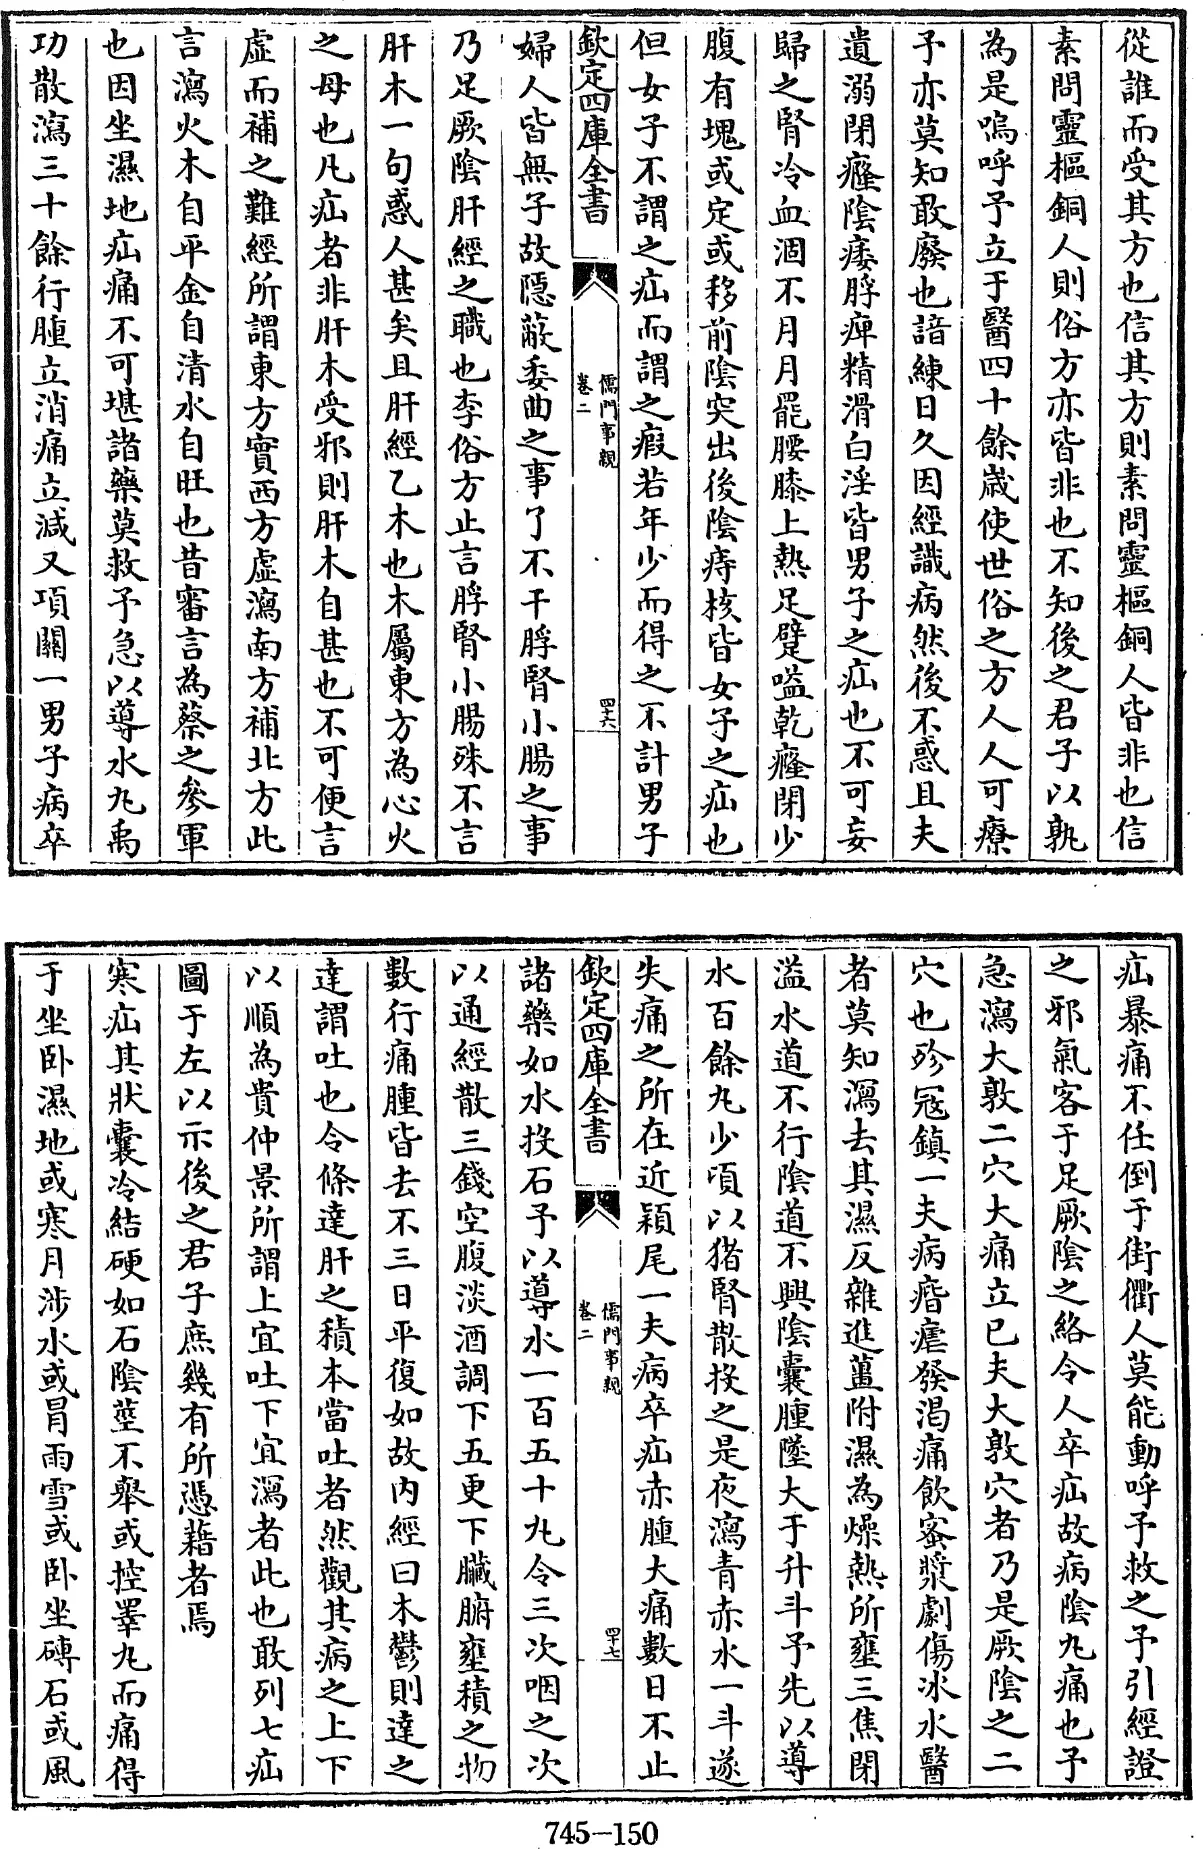 從誰而受其方也信其方則素問靈樞銅人皆非也信
素問靈樞銅人則俗方亦皆非也不知後之君子以孰
為是嗚呼予立于醫四十餘嵗使世俗之方人人可療
予亦莫知敢廢也諳練日久因經識病然後不惑且夫
遺溺閉癃陰痿脬痺精滑白淫皆男子之疝也不可妄
歸之腎冷血涸不月月罷腰膝上熱足躄嗌乾癃閉少
腹有塊或定或移前陰突出後陰痔核皆女子之疝也
但女子不謂之疝而謂之瘕若年少而得之不計男子
欽定四庫全書
儒門事親
卷二
四十六
婦人皆無子故隱蔽委曲之事了不干脬腎小腸之事
乃足厥陰肝經之職也李俗方止言脬腎小腸殊不言
肝木一句惑人甚矣且肝經乙木也木屬東方為心火
之母也凡疝者非肝木受邪則肝木自甚也不可便言
虛而補之難經所謂東方實西方虛瀉南方補北方此
言瀉火木自平金自清水自旺也昔審言為蔡之參軍
也因坐濕地疝痛不可堪諸藥莫救予急以導水丸禹
功散瀉三十餘行腫立消痛立減又項關一男子病卒
疝暴痛不任倒于街衢人莫能動呼予救之予引經證
之邪氣客于足厥陰之絡令人卒疝故病陰丸痛也予
急瀉大敦二穴大痛立已夫大敦穴者乃是厥陰之二
穴也殄冦鎮一夫病痁瘧發渴痛飲蜜漿劇傷冰水醫
者莫知瀉去其濕反雜進薑附濕為燥熱所壅三焦閉
溢水道不行陰道不興陰囊腫墜大于升斗予先以導
水百餘丸少頃以猪腎散投之是夜瀉青赤水一斗遂
失痛之所在近潁尾一夫病卒疝赤腫大痛數日不止
欽定四庫全書
儒門事親
卷二
四十七
諸藥如水投石予以導水一百五十丸令三次咽之次
以通經散三錢空腹淡酒調下五更下臟腑壅積之物
數行痛腫皆去不三日平復如故内經曰木鬱則達之
達謂吐也令條達肝之積本當吐者然觀其病之上下
以順為貴仲景所謂上宜吐下宜瀉者此也敢列七疝
圖于左以示後之君子庶幾有所憑藉者焉
寒疝其狀囊冷結硬如石陰莖不舉或控睪丸而痛得
于坐卧濕地或寒月涉水或冒雨雪或卧坐磚石或風
745-150